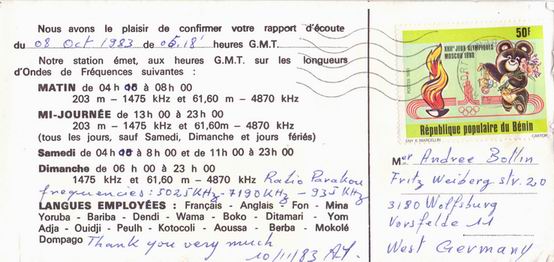 Nous avons le plaisir de confirmer votre rapport d'écoute
du 08 Oct 1983 de 05.18' heures G.M.T.
Notre station émet, aux heures G.M.T. sur les longueurs
d'Ondes de Fréquences suivantes :
MATIN de 04 h à 08 h 00
203 m – 1475 kHz et 61,60 m – 4870 kHz
MI-JOURNÉE de 13 h 00 à 23 h 00
203 m – 1475 kHz et 61,60m – 4870 kHz
(tous les jours, sauf Samedi, Dimanche et jours fériés)
Samedi de 04 h à 8 h 00 et de 11 h 00 à 23 h 00
Dimanche de 06 h 00 à 23 h 00
1475 kHz et 61,60 m – 4870 kHz Radio Parakou
frequencies: 5025 KHz - 7190 KHz - 935 KHz
LANGUES EMPLOYÉES : Français - Anglais - Fon - Mina
Yoruba - Bariba - Dendi - Wama - Boko - Ditamari - Yom
Adja - Ouidji - Peulh - Kotocoli - Aoussa - Berba - Mokolé
Dompago Thank you very much
10/11/83
50F
XXIIes JEUX OLYMPIQUES
MOSCOU 1980
République populaire du Bénin
Mer Andree Bollin
Fritz Weiberg str. 20
3180 Wolfsburg
Vorsfelde 11
West Germany